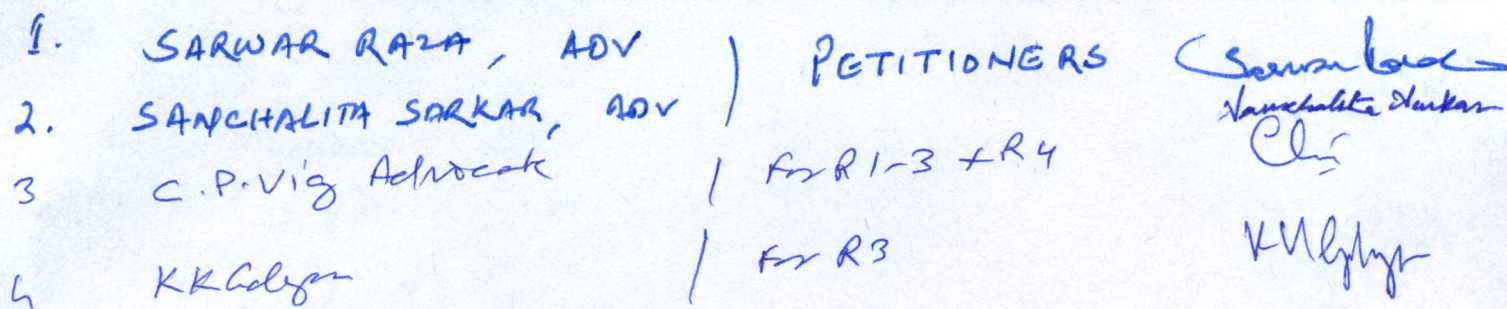 1. SARWAR RAZA, ADV / PETITIONERS Sarwar Raza
2. SANCHALITA SARKAR, ADV Sanchalita Sarkar
3 C.P. Vig Advocate / For R1-3 + R4
4 KK / For R3